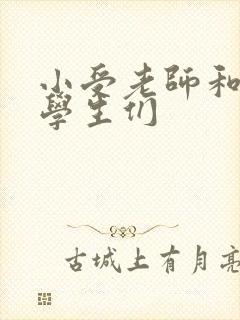 小受老師和
學生们
古城上有月亮